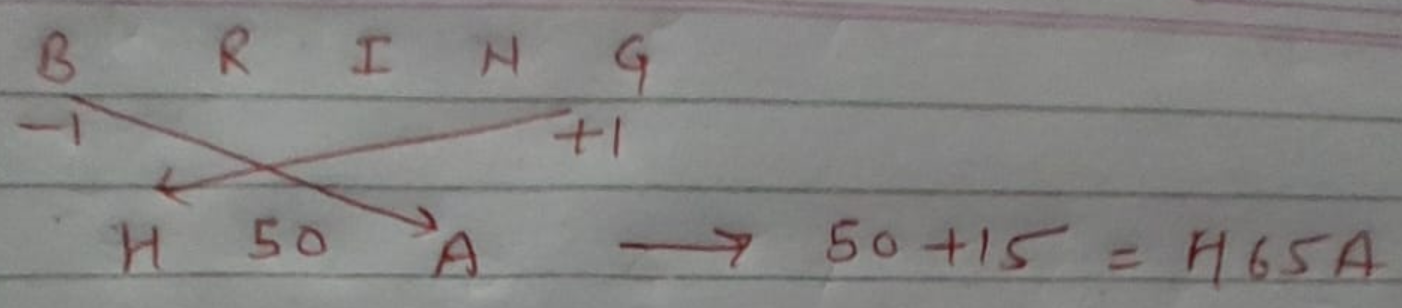 B R I N G
-1 +1
H 50 A → 50 + 15 = H65A